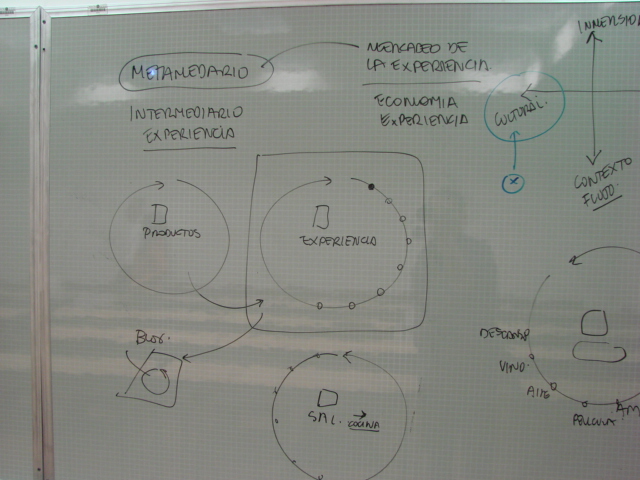 METAMEDIARIO
INTERMEDIARIO
EXPERIENCIA
MERCADEO DE
LA EXPERIENCIA.
ECONOMIA
EXPERIENCIA
CULTURAL.
INMERSIO
CONTEXTO
FLUJO.
PRODUCTOS
EXPERIENCIA
BLOG.
SAL. → COCINA
DESCANSA
VINO.
PELICULA.
AM